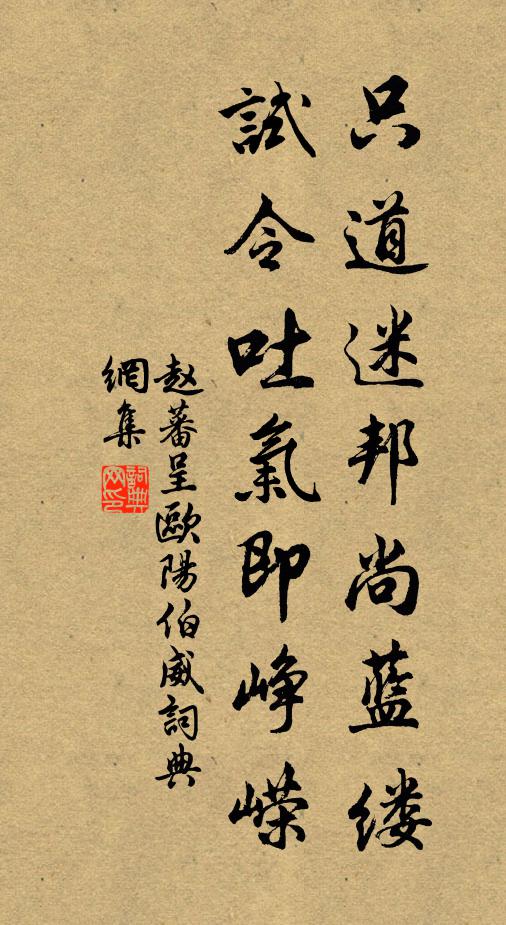 只道迷邦尚藍缕
試令吐氣即峥嵘
赵蕃呈歐陽伯威詞典
網集
詞典
网印